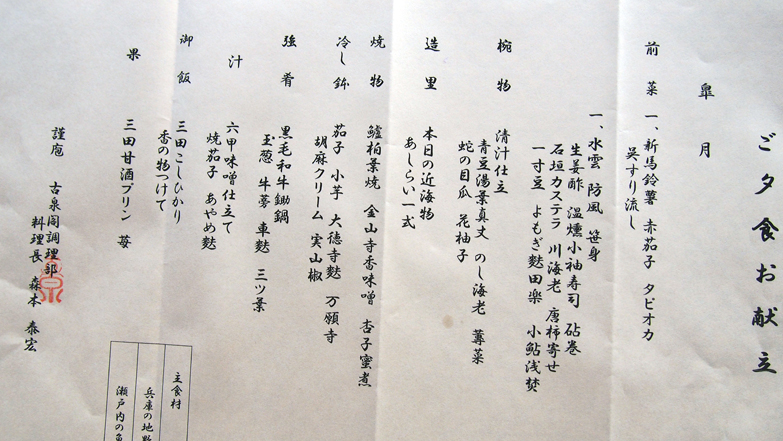 ご夕食お献立
皐月
前菜 一、新馬鈴薯 赤茄子 タピオカ
呉すり流し
一、水雲 防風 笹身
生姜酢 温燻小袖寿司 砧巻
石垣カステラ 川海老 唐柿寄せ
一寸豆 よもぎ麩田楽 小鮎浅焚
椀物 清汁仕立
青豆湯葉真丈 のし海老 蓴菜
蛇の目瓜 花柚子
造里 本日の近海物
あしらい一式
焼物 鱸柏葉焼 金山寺香味噌 杏子蜜煮
冷し鉢 茄子 小芋 大徳寺麩 万願寺
胡麻クリーム 実山椒
強肴 黒毛和牛鋤鍋
玉葱 牛蒡 車麩 三ツ葉
汁 六甲味噌仕立て
焼茄子 あやめ麩
御飯 三田こしひかり
香の物つけて
果 三田甘酒プリン 苺
謹庖 古泉閣調理部
料理長 森本 泰宏
主食材
兵庫の地野
瀬戸内の魚